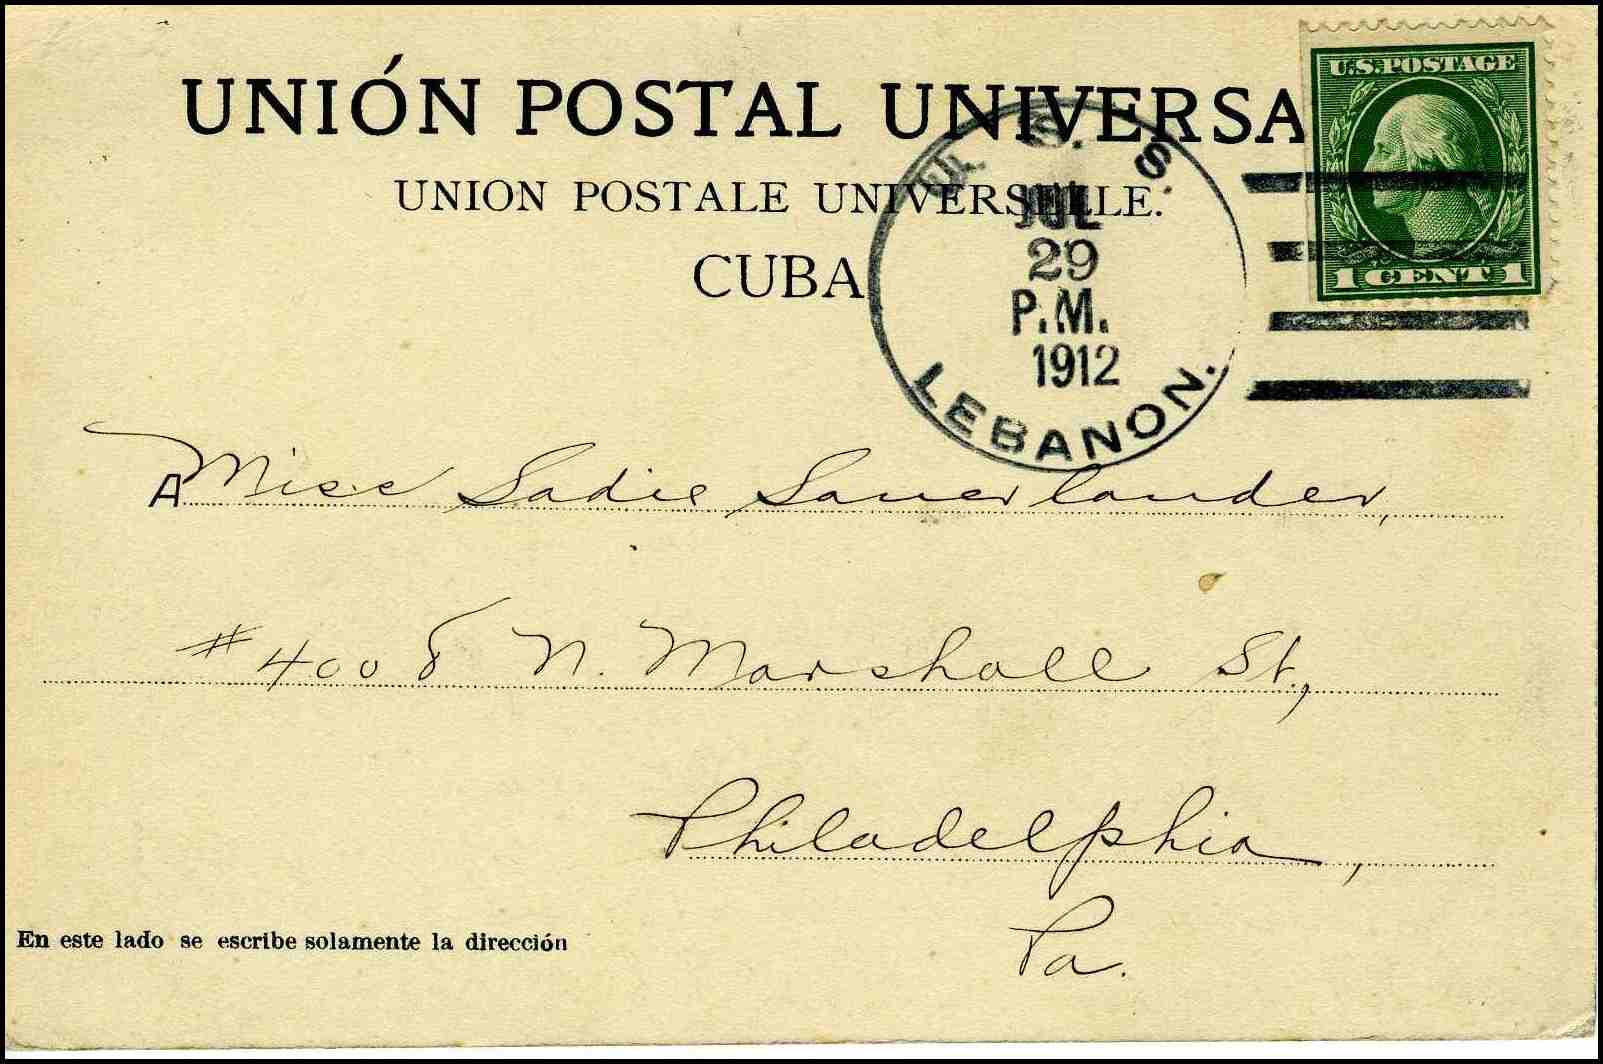 UNIÓN POSTAL UNIVERSA
UNION POSTALE UNIVERSELLE.
CUBA
U.S. POSTAGE
1 CENT 1
U. S. S.
JUL
29
P.M.
1912
LEBANON.
A Miss Sadie Sauerlander,
#4008 N. Marshall St.,
Philadelphia,
Pa.
En este lado se escribe solamente la dirección